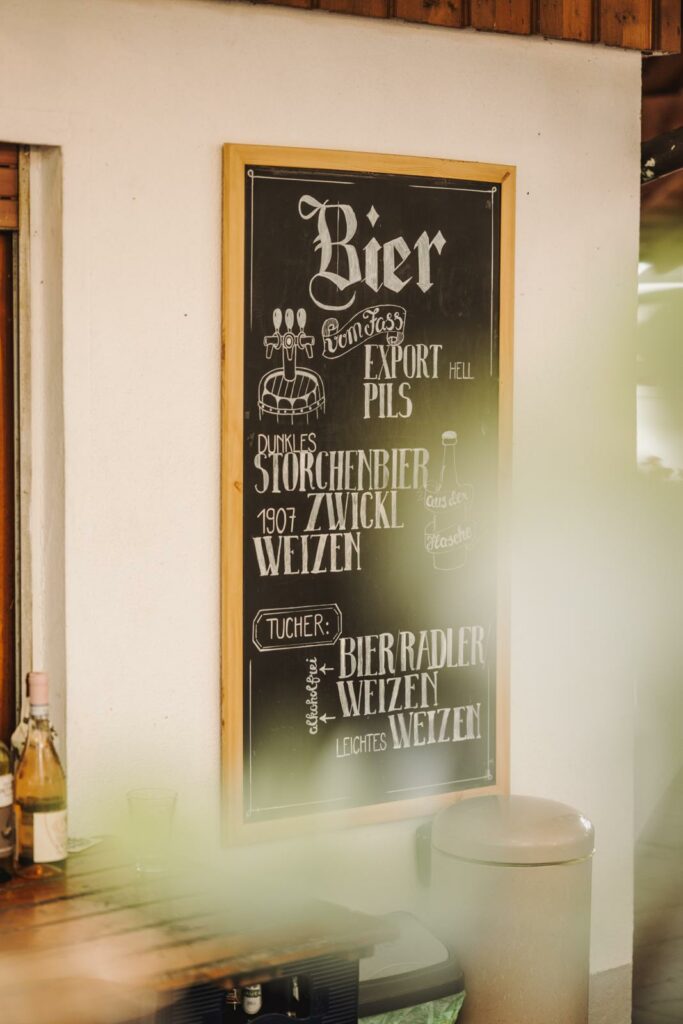 Bier
vom Fass
EXPORT HELL
PILS
DUNKLES
STORCHENBIER
1907 ZWICKL
WEIZEN
aus der
Flasche
TUCHER:
BIER/RADLER
WEIZEN
alkoholfrei
LEICHTES WEIZEN